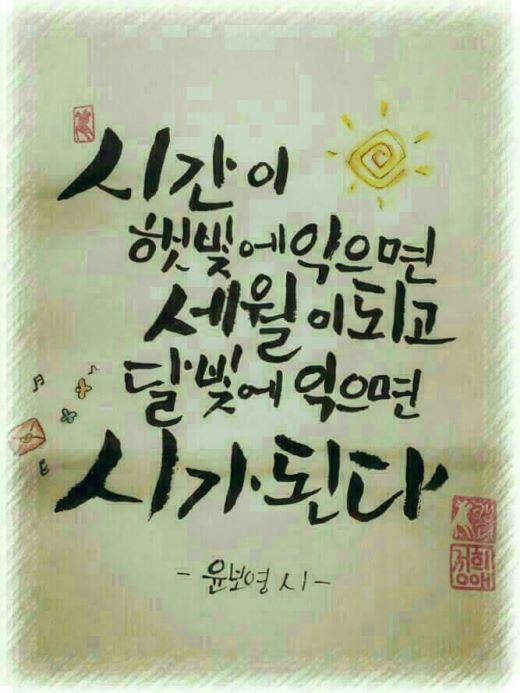 시간이
햇빛에 익으면
세월이 되고
달빛에 익으면
시가 된다
- 윤보영 시 -
정희
애